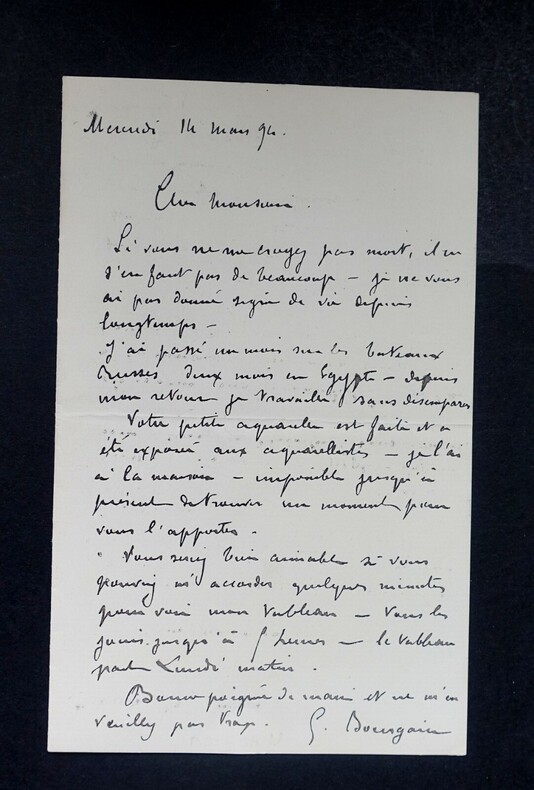 Mercredi 14 mars 94.
Cher Monsieur.
Si vous ne me croyez pas mort, il ne
s'en faut pas de beaucoup – je ne vous
ai pas donné signe de vie depuis
longtemps –
J'ai passé un mois sur les bateaux
Russes deux mois en Egypte – depuis
mon retour je travaille sans désemparer
Votre petite aquarelle est faite et a
été exposée aux aquarellistes – je l'ai
à la maison – impossible jusqu'à
présent de trouver un moment pour
vous l'apporter.
Vous seriez bien aimable si vous
pouviez m'accorder quelques minutes
pour voir mon tableau – tous les
jours jusqu'à heures – le tableau
part Lundi matin.
Bonne poignée de main et ne m'en
veuillez pas trop. G. Bourgain